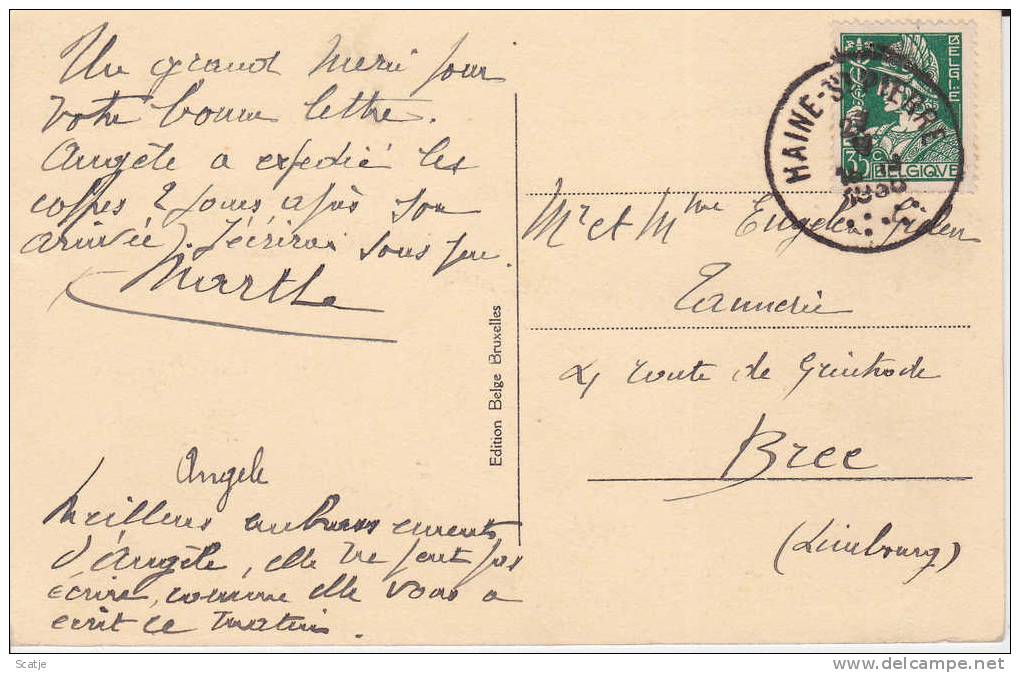 Un grand merci pour
votre bonne lettre.
Angèle a expedié les
coffres 2 jours après son
arrivée). J'écrirai sous peu.
Marthe
Angèle
Meilleurs embrassements
d'Angèle, elle ne peut pas
écrire, comme elle vous a
écrit ce matin.
Edition Belge Bruxelles
BELGIE
35 C
BELGIQVE
HAINE-St-PIERRE
Mr et Mme Engelen
Tannerie
4 route de Gruitrode
Bree
(Limbourg)
Scatje
http://www.delcampe.net